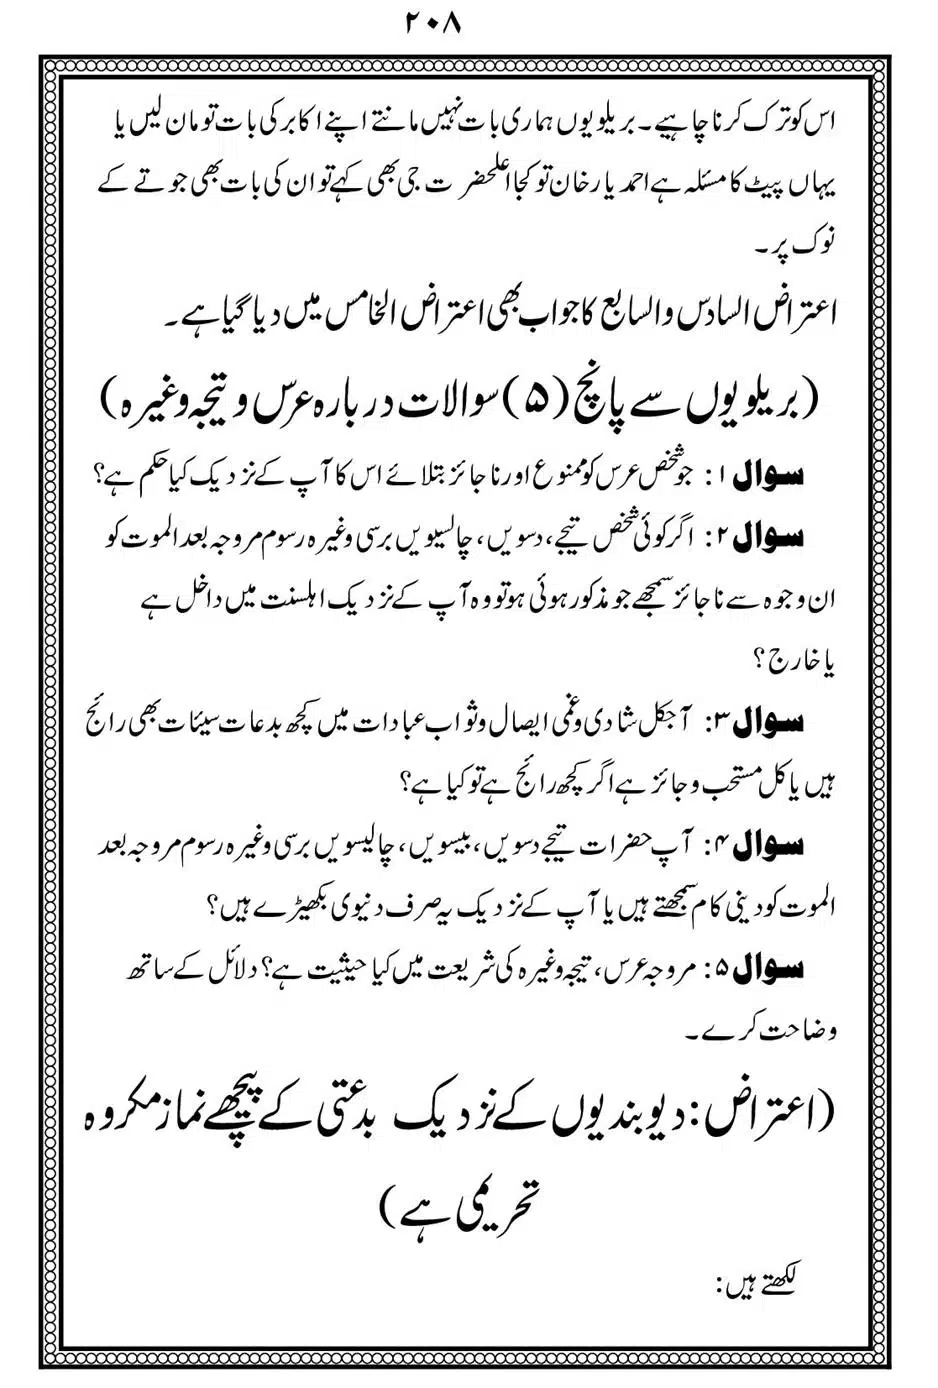 ۲۰۸
اس کو ترک کرنا چاہیے۔ بریلویوں ہماری بات نہیں مانتے اپنے اکابر کی بات تو مان لیں یا
یہاں پیٹ کا مسئلہ ہے احمد یار خان تو کجا اعلحضرت جی بھی کہے تو ان کی بات بھی جوتے کے
نوک پر۔
اعتراض السادس والسابع کا جواب بھی اعتراض الخامس میں دیا گیا ہے۔
(بریلویوں سے پانچ (۵) سوالات دربارہ عرس و تیجہ وغیرہ)
سوال ۱: جو شخص عرس کو ممنوع اور ناجائز بتلائے اس کا آپ کے نزدیک کیا حکم ہے؟
سوال ۲: اگر کوئی شخص تیجے، دسویں، چالسیویں برسی وغیرہ رسوم مروجہ بعد الموت کو
ان وجوہ سے ناجائز سمجھے جو مذکور ہوئی ہو تو وہ آپ کے نزدیک اہلسنت میں داخل ہے
یا خارج؟
سوال ۳: آجکل شادی وغمی ایصال وثواب عبادات میں کچھ بدعات سیئات بھی رائج
ہیں یا کل مستحب و جائز ہے اگر کچھ رائج ہے تو کیا ہے؟
سوال ۴: آپ حضرات تیجے دسویں، بیسویں، چالیسویں برسی وغیرہ رسوم مروجہ بعد
الموت کو دینی کام سمجھتے ہیں یا آپ کے نزدیک یہ صرف دنیوی بکھیڑے ہیں؟
سوال ۵: مروجہ عرس، تیجہ وغیرہ کی شریعت میں کیا حیثیت ہے؟ دلائل کے ساتھ
وضاحت کرے۔
(اعتراض: دیوبندیوں کے نزدیک بدعتی کے پیچھے نماز مکروہ
تحریمی ہے)
لکھتے ہیں: